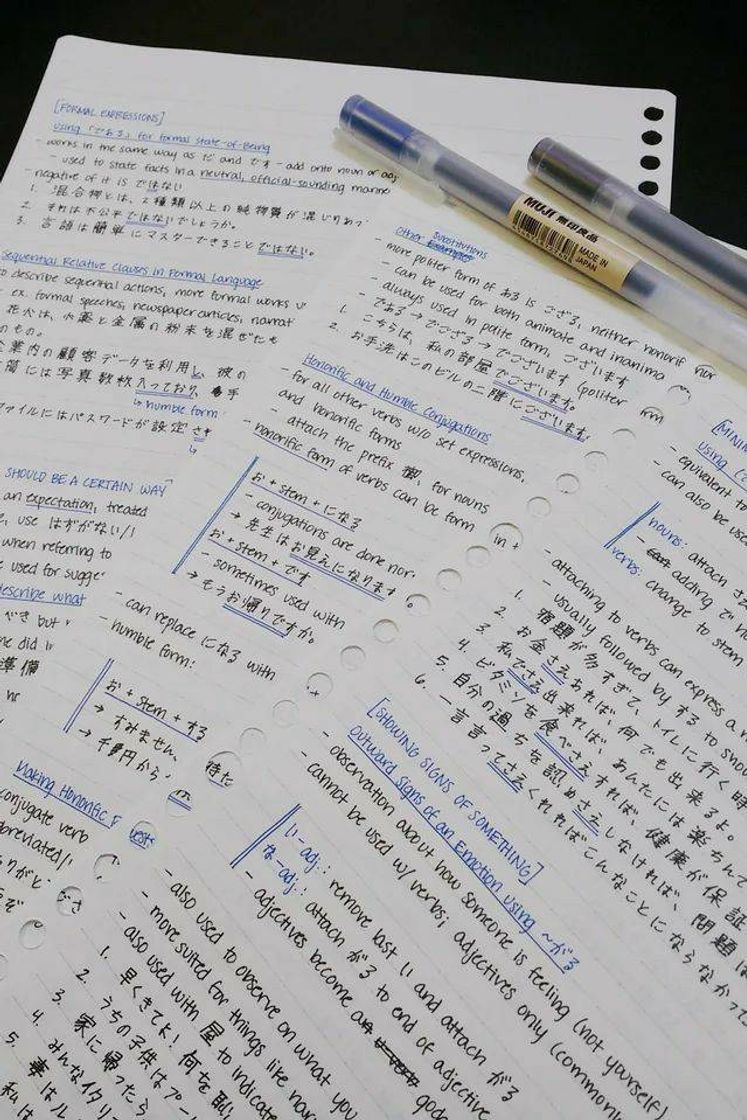 [FORMAL EXPRESSIONS]
Using「である」for formal state-of-Being
- works in the same way as だ and です - add onto noun or adj
- used to state facts in a neutral, official-sounding manne
- negative of it is ではない
1. 混合物とは、2種類以上の純物質が混じりあっ
2. それは不公平ではないでしょうか。
3. 言語は簡単にマスターできることではない。
Sequential Relative Clauses in Formal Language
to describe sequential actions, more formal works
ex. formal speeches, newspaper articles, narrat
花火は、火薬と金属の粉末を混ぜたも
のもの。
企業内の顧客データを利用し、彼の
には写真数枚入っており、手
↳ humble form
ファイルにはパスワードが設定され
SHOULD BE A CERTAIN WAY
an expectation, treated
use はずがない/
when referring to
used for sugge
describe what
べき but
did
準備
Making Honorific F
conjugate verb
breviated/
MUJI 無印良品
MADE IN JAPAN
Other Substitutions
- more politer form of ある is ござる, neither honorif nor
- can be used for both animate and inanima
- always used in polite form, ございます
- である→でござる→でございます (politer form
1. こちらは、私の部屋でございます。
2. お手洗はこのビルの二階にございます。
Honorific and Humble Conjugations
- for all other verbs w/o set expressions,
and honorific forms
- attach the prefix 御, for nouns
- honorific form of verbs can be form
お + stem + になる
- conjugations are done nor
→ 先生はお見えになります。
お + stem + です
- sometimes used with
→ もうお帰りですか。
- can replace になる with
- humble form:
お + stem + する
→ すみません、
→ 千円から
待た
[MINI
Using
- equivalent t
- can also be used
nouns: attach さ
- adding で
verbs: change to stem
- attaching to verbs can express a
- usually followed by する to sho
1. 宿題が多すぎて、トイレに行く時
2. お金さえあれば、何でも出来るよ。
3. 私でさえ出来れば、あんたには楽ちんで
4. ビタミンを食べさえすれば、健康が保証
5. 自分の過ちを認めさえしなければ、問題は
6. 一言言ってさえくれればこんなことにならなかっ
[SHOWING SIGNS OF SOMETHING]
Outward Signs of an Emotion using ~がる
- observation about how someone is feeling (not yourself)
- cannot be used w/ verbs; adjectives only (common
い-adj.: remove last い and attach がる
な-adj.: attach がる to end of adjective
- adjectives become a godan
- also used to observe on what you
- more suited for things like narr
- also used with 屋 to indicate
1. 早くきてよ！何を恥
2. うちの子供はプー
3. 家に帰ったら
4. みんなイタリ
5. 妻はル
私は